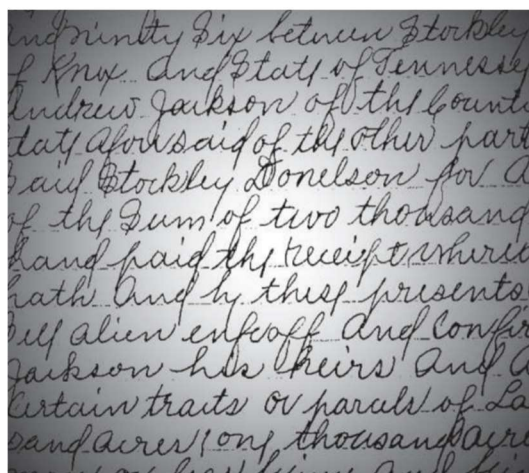 and ninity Six between Stockley
f Knox and State of Tennesse
Andrew Jackson of the Count
tate aforesaid of the other part
Said Stockley Donelson for a
of the Sum of two thousand
hand paid the receipt where
hath and by these presents
Sell alien enfeoff and Confir
Jackson his heirs and a
Certain traits or parcels of La
sand acres one thousand acre